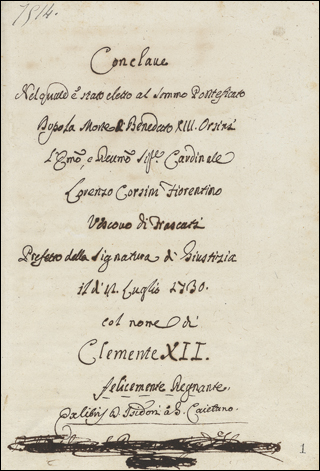 1514.
Conclave
Nel quale è stato eletto al Sommo Pontificato
Dopo la Morte di Benedetto XIII. Orsini
L'Emo, e Revmo Sigr. Cardinale
Lorenzo Corsini Fiorentino
Vescovo di Frascati
Prefetto della Signatura di Giustizia
il dì 12. Luglio 1730.
col nome di
Clemente XII.
felicemente Regnante.
Ex libris D. Isidori à S. Caietano.
1